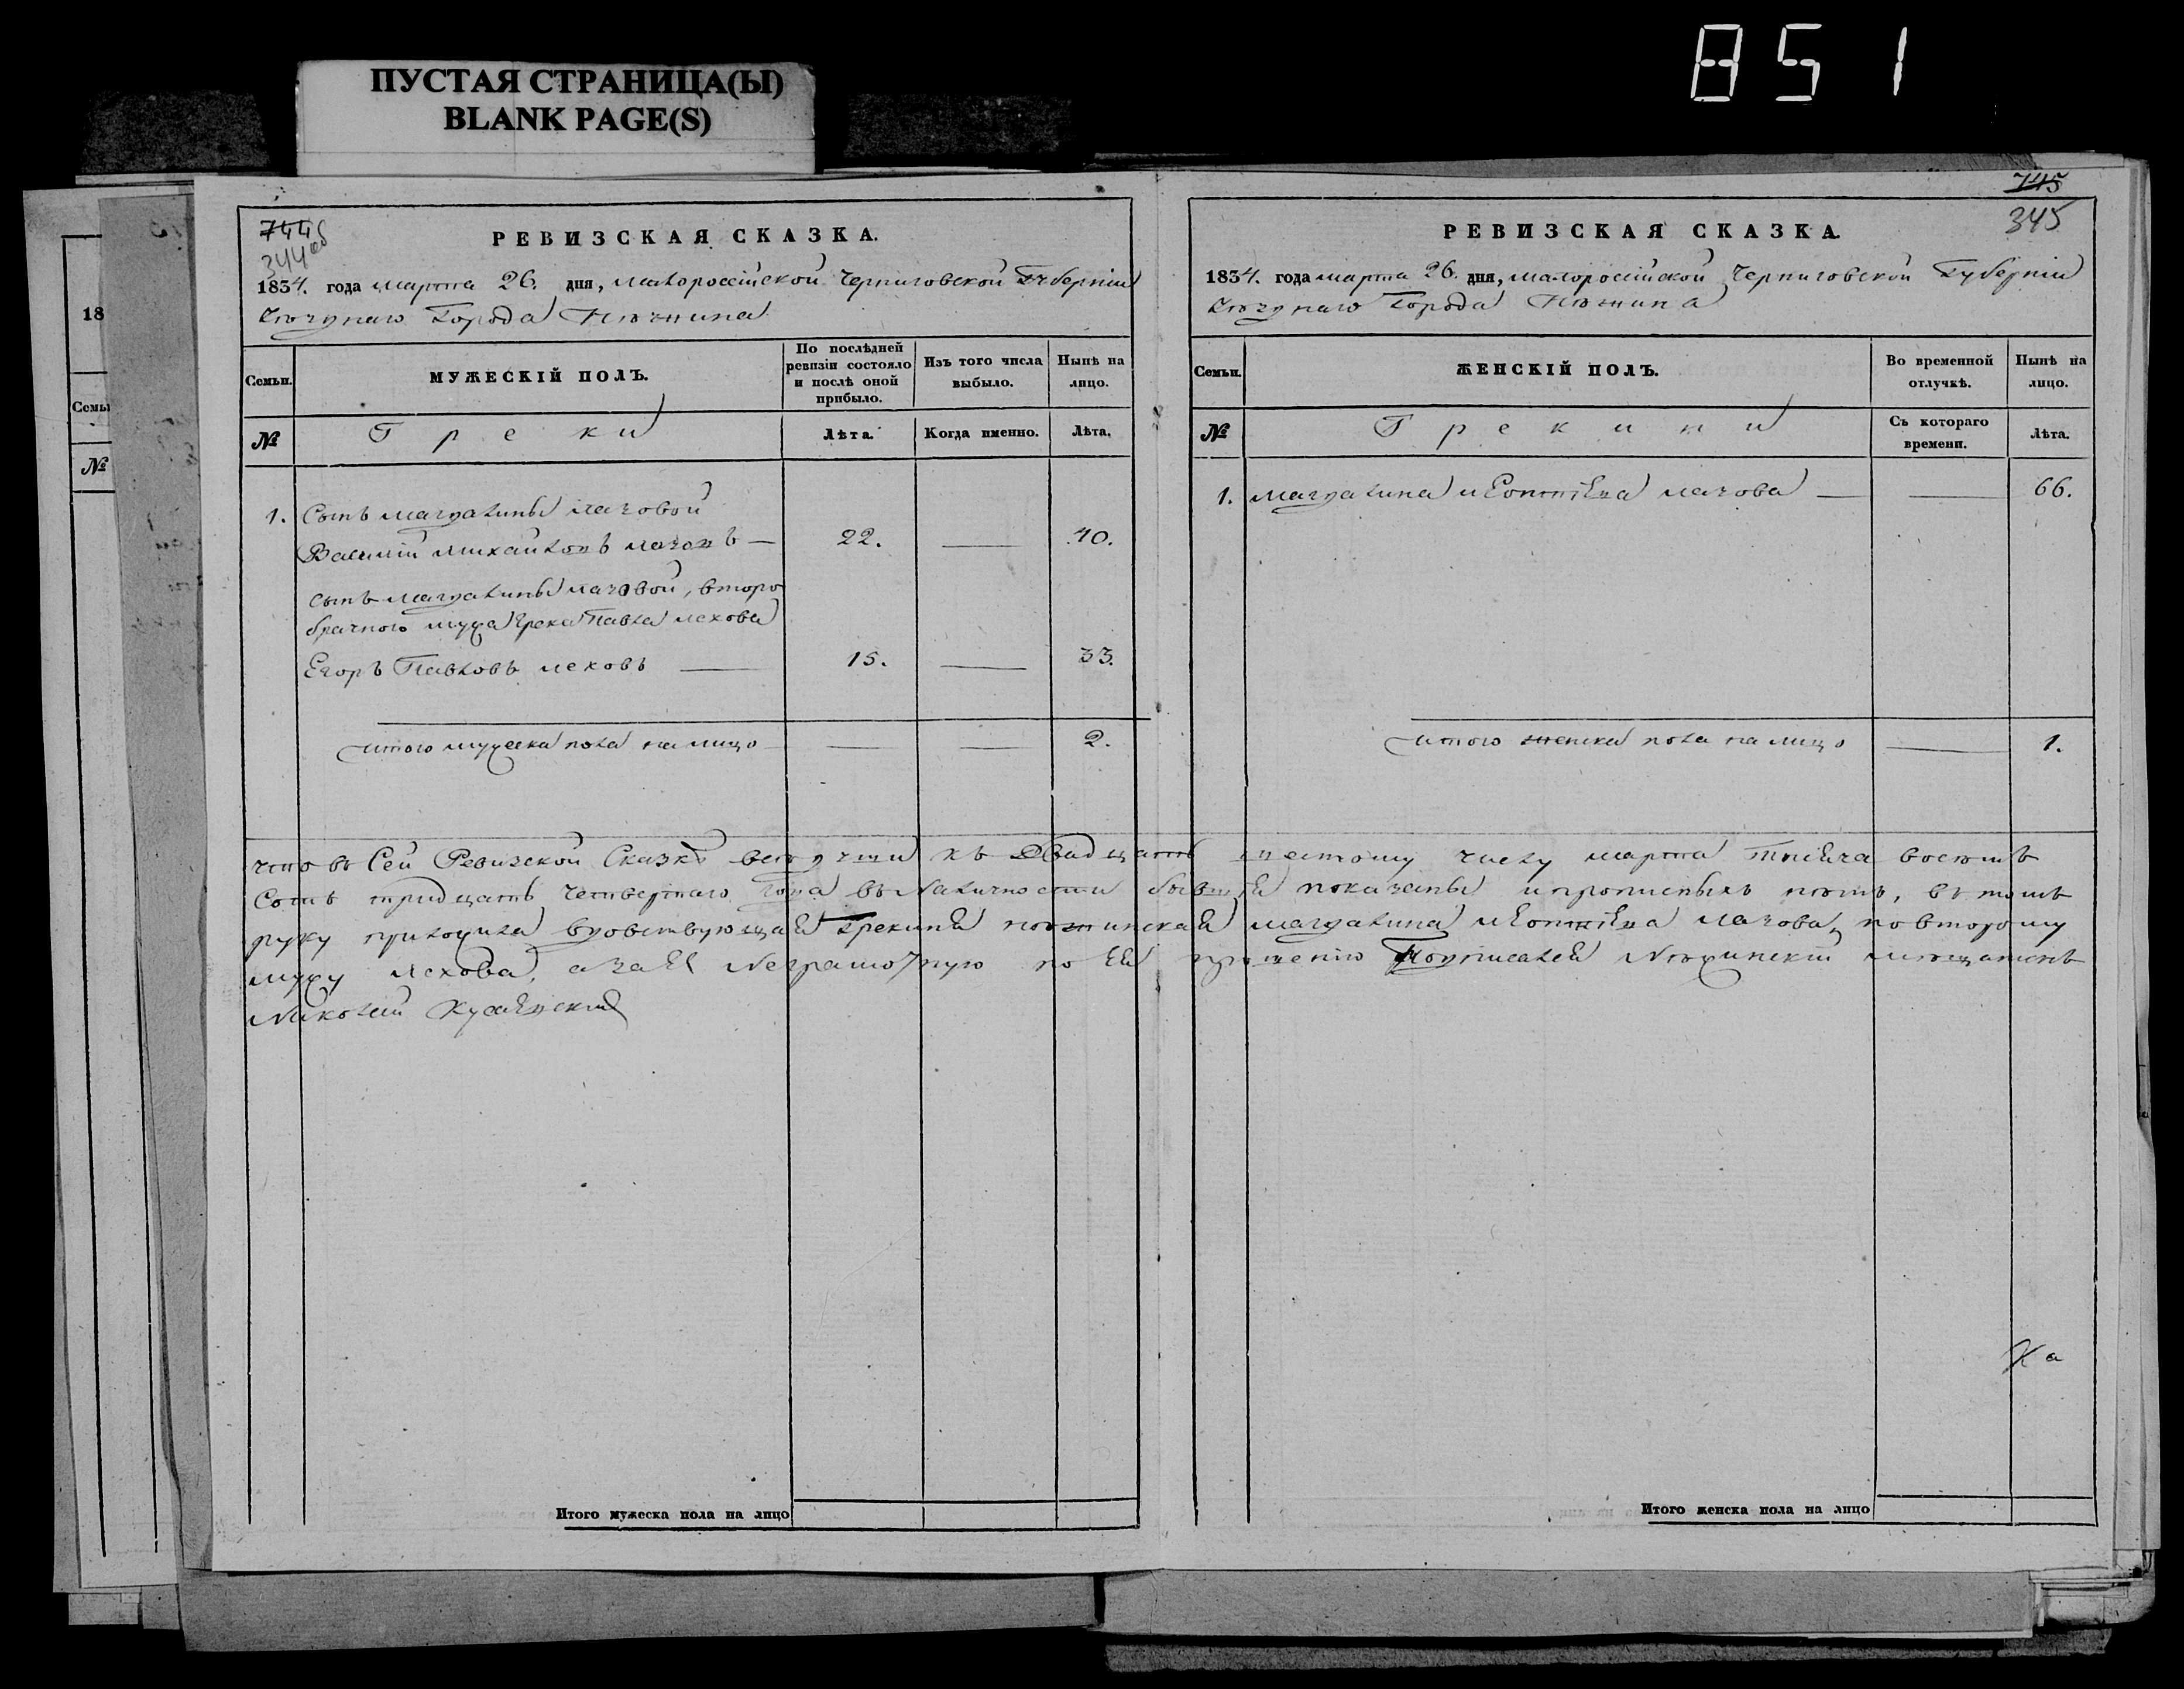 851
ПУСТАЯ СТРАНИЦА(Ы)
BLANK PAGE(S)
18
Семьи
№
744
344 об
РЕВИЗСКАЯ СКАЗКА.
1834. года марта 26. дня, малороссійской Черниговской Губерніи
Города Нѣжина
Семьи.
МУЖЕСКІЙ ПОЛЪ.
По послѣдней ревизіи состояло и послѣ оной прибыло.
Изъ того числа выбыло.
Нынѣ на лицо.
№
Греки
Лѣта.
Когда именно.
Лѣта.
1. Сынъ магдалины лазовой
Василий михайловъ лазовъ — 22. — 40.
сынъ магдалины лазовой, второ
брачного мужа Грека Павла лехова
Егоръ Павловъ леховъ — 15. — 33.
итого мужеска пола на лицо — — 2.
745
345
РЕВИЗСКАЯ СКАЗКА.
1834. года марта 26. дня, малоросійской Черниговской Губерніи
Города Нѣжина
Семьи.
ЖЕНСКІЙ ПОЛЪ.
Во временной отлучкѣ.
Нынѣ на лицо.
№
Грекини
Съ котораго времени.
Лѣта.
1. магдалина лазова — — 66.
итого женска пола на лицо — 1.
что въ Сей Ревизской Сказкѣ къ двадцать шестому числу марта тисяча восемъ
Сотъ тридцать четвертаго года въ Наличности показаны и прописныхъ нѣтъ, въ томъ
руку приложила вдовствующая Грекиня нѣжинская магдалина лазова, по второму
мужу лехова, а за Ея Неграмотную по Ея прошенію Подписалея Нѣжинскій мѣщанинъ
Николай
Ка
Итого мужеска пола на лицо
Итого женска пола на лицо